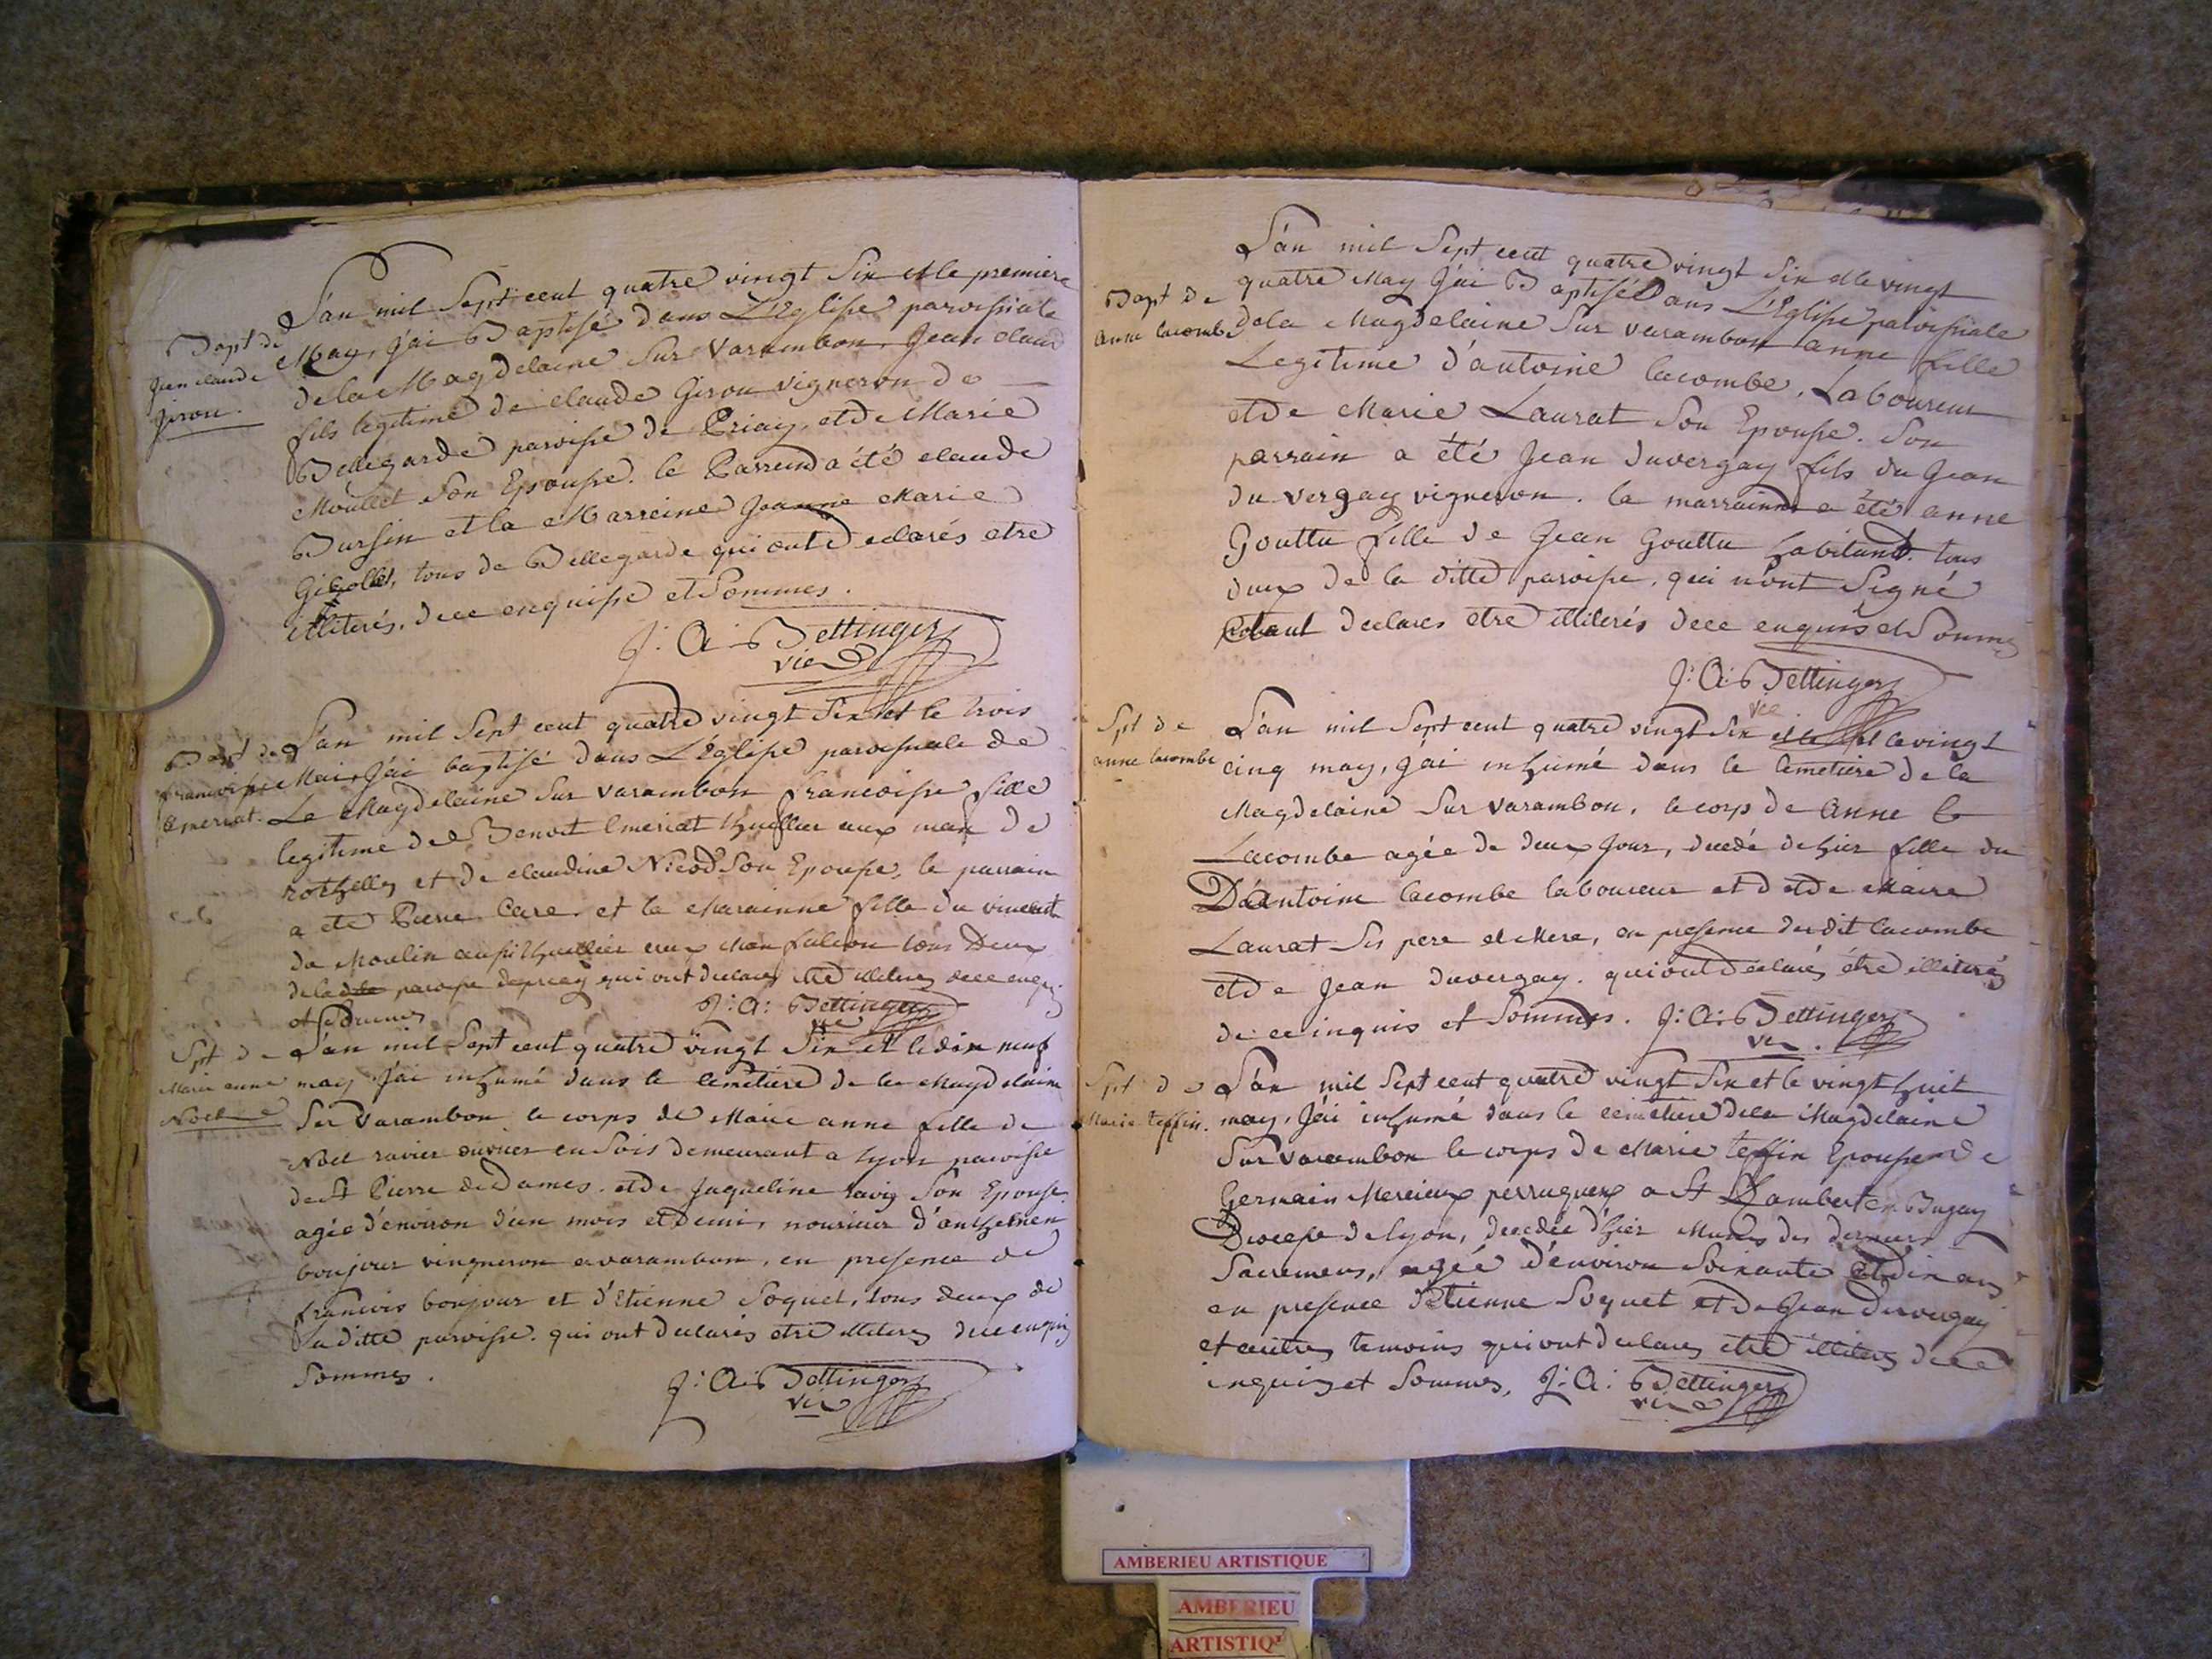 Bapt de
Jean claude
Giron.
L'an mil Sept cent quatre vingt Six et le premiere
May, j'ai Baptisé dans L'Eglise paroissiale
de la Magdelaine Sur Varambon, Jean claud
fils legitime de claude Giron vigneron de
Bellegarde paroisse de Priay, et de Marie
Moullet Son Epouse. le Parrein a été claude
Bursin et la Marreine Jeanne Marie
tous de Bellegarde qui ont declarés etre
illiterés. de ce enquisse et Sommes.
J: A: Bettinger
vic
Bapt de
francoisse
Emeriat.
L'an mil Sept cent quatre vingt Six et le trois
Mai, J'ai baptisé dans L'Eglise paroissiale de
La Magdelaine Sur varambon francoisse fille
legitime de Benoit Emeriat huillier aux man de
et de claudine Nicod Son Epouse, le parrain
a été Pierre Care, et la Marainne fille du vincent
du Moulin aussi huillier aux Man tous Deux
de la paroisse qui ont declarés etre illiteres de ce enquis
et Sommes
J: A: Bettinger
vic
Spt de
Marie anne
Noel
L'an mil Sept cent quatre vingt Six et le dix neuf
may J'ai inhumé dans le Cemetiere de la Magdelaine
Sur Varambon le corps de Marie anne fille de
Noel ravier ouvrier en Sois demeurant a Lyon paroisse
de St Pierre de Dames. et de Jaqueline Son Epouse
agée d'environ d'un mois et Demi, d'anthelmen
bonjour vingneron a varambon, en presence de
francois bonjour et d'Etienne Soquet, tous deux de
la ditte paroisse. qui ont declarés etre illiteres de ce enquis
Sommes.
J: A: Bettinger
vic
Bapt de
Anne lacombe
L'an mil Sept cent quatre vingt Six et le vingt
quatre May J'ai Baptisé Dans L'Eglise paroissiale
de la Magdelaine Sur varambon anne fille
Legitime d'antoine lacombe, Laboureur
et de Marie Laurat Son Epousse. Son
parrain a été Jean Duvergay fils du Jean
du vergay vigneron. la marrainne a été anne
Gouttu fille de Jean Gouttu habitant. tous
deux de la ditte paroisse, qui n'ont Signé
declares etre illiterés de ce enquis et Somme
J: A: Bettinger
vic
Spt de
anne lacombe
L'an mil Sept cent quatre vingt Six et le et le vingt
cinq may, j'ai inhumé dans le Cemetiere de la
Magdelaine Sur Varambon, le corps de Anne la
Lacombe agée de deux Jour, decedé de hier fille du
D'antoine lacombe laboureur et d et de Marie
Laurat Ses pere et Mere, en presence du dit lacombe
et de Jean Duvergay. qui ont declarés étre illiterés
de ce inquis et Sommes. J: A: Bettinger
vic.
Spt de
Marie teffin.
L'an mil Sept cent quatre vingt Six et le vingt huit
may, J'ai inhumé dans le cemetiere de la Magdelaine
Sur Varambon le corps de Marie teffin Epousse de
Germain Mercieux perruquer a St Rambert en Bugay
Diocese de Lyon, decedée d'hier Munis des derniers
Sacremens, agée d'environ Soixante et dix ans
en presence d'Etienne Soquet et de Jean Duvergay
et autres temoins qui ont declares etre illiteres de ce
inquis et Sommes, J: A: Bettinger
vic
AMBERIEU ARTISTIQUE
AMBERIEU
ARTISTIQ